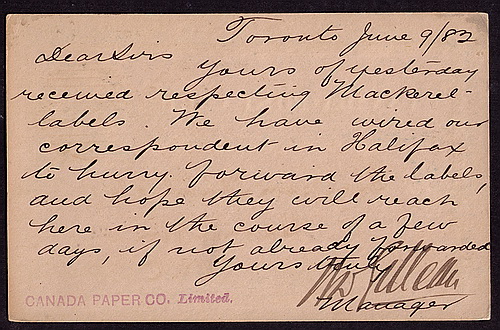 Toronto June 9/83
Dear Sirs
Yours of yesterday
received respecting Mackerel-
labels. We have wired our
correspondent in Halifax
to hurry forward the labels,
and hope they will reach
here in the course of a few
days, if not already forwarded
Yours truly
Manager
CANADA PAPER CO. Limited.